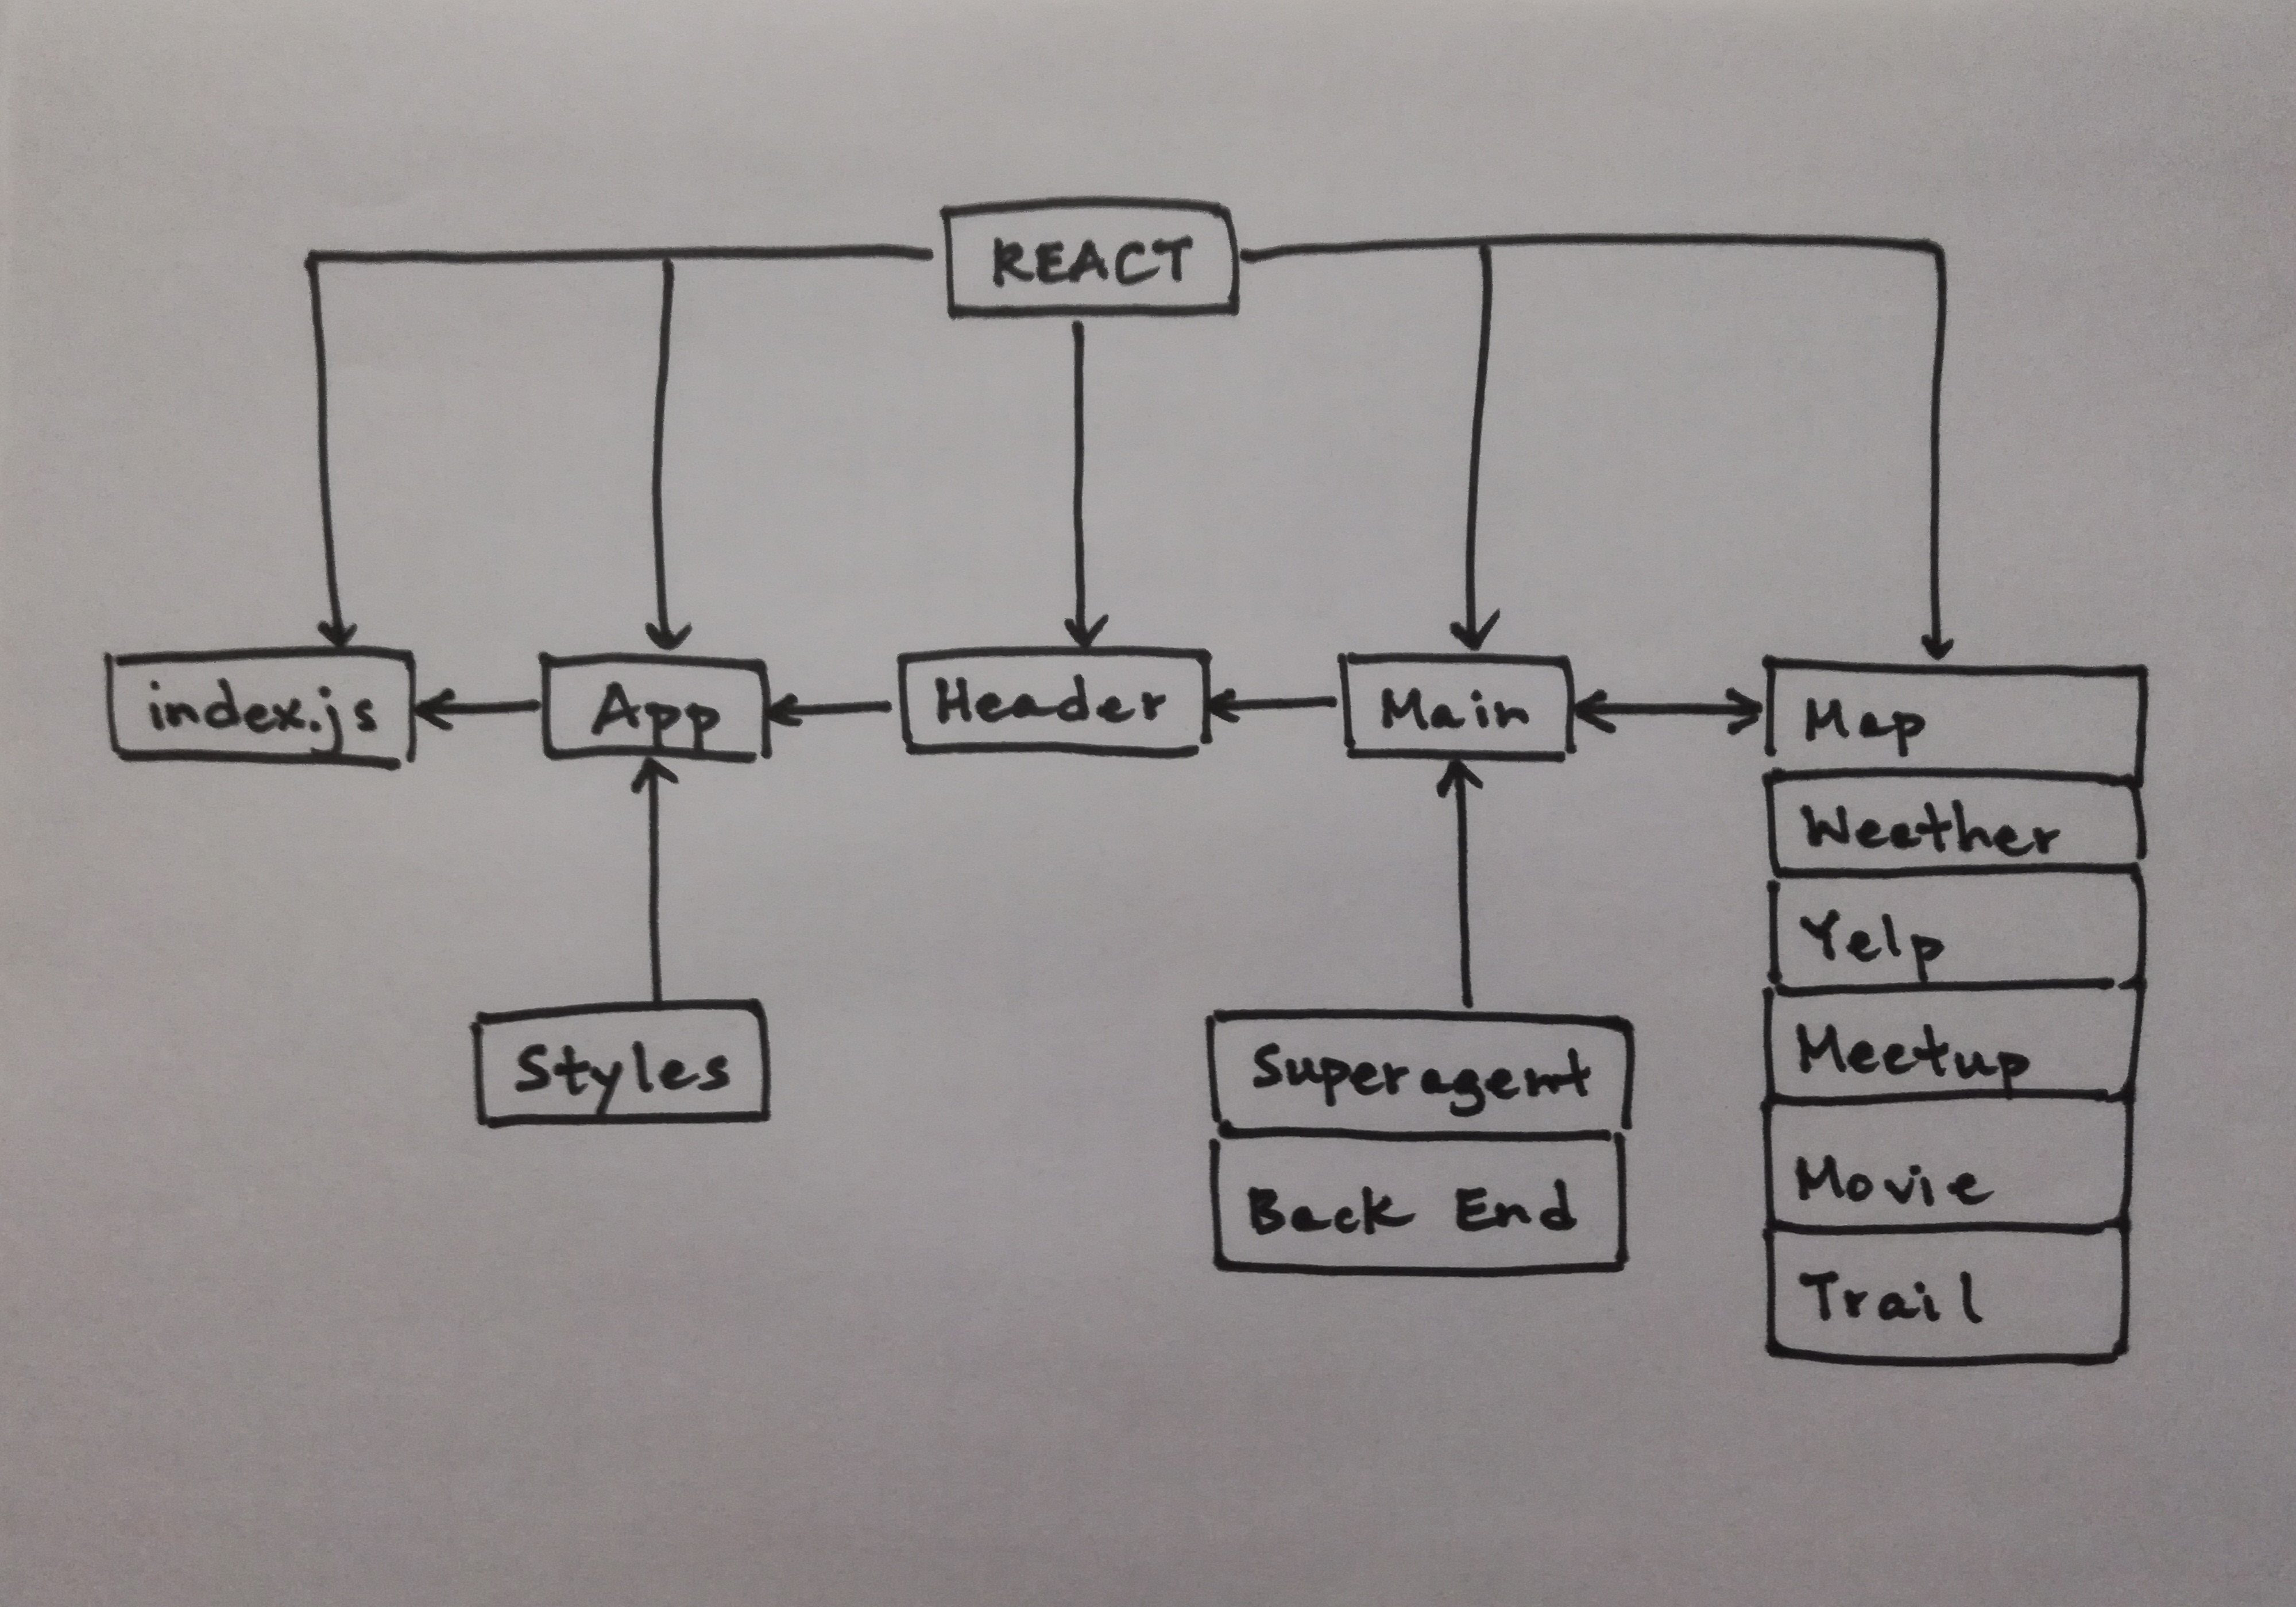 REACT
index.js
App
Header
Main
Map
Weather
Yelp
Meetup
Movie
Trail
Styles
Superagent
Back End